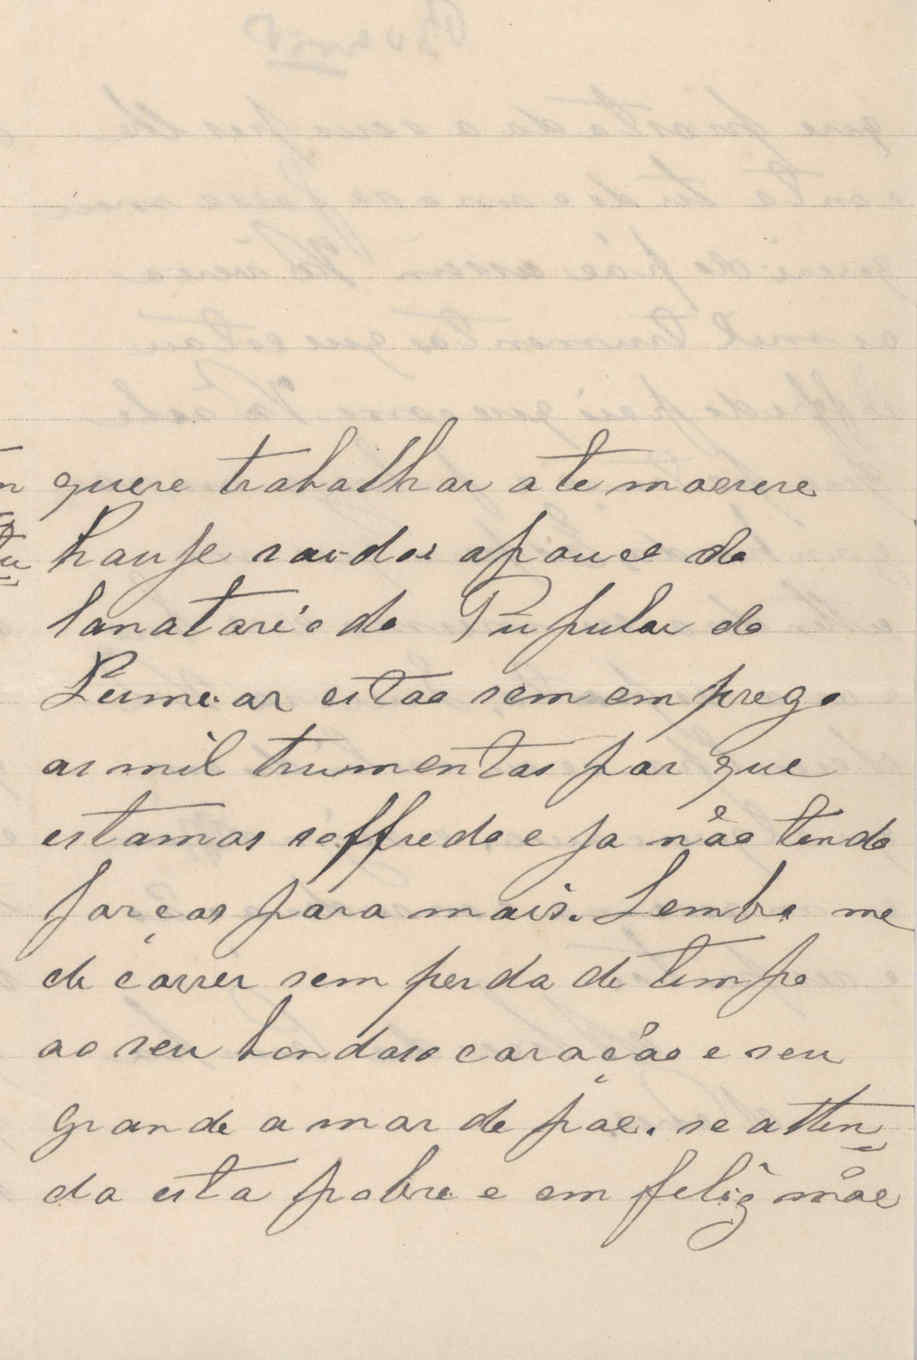 quere trabalhar ate moerere
hauje sai-dos apouco do
sanatario do Pupular do
Lumi-ar estao sem emprego
as mil trumentas por que
estamos soffredo e ja não tendo
forças para mais. Lembro me
de çorrer sem perda de tempo
ao seu bondoso caração e seu
grande amor de pae. se atten
da esta pobre e em feliz mãe